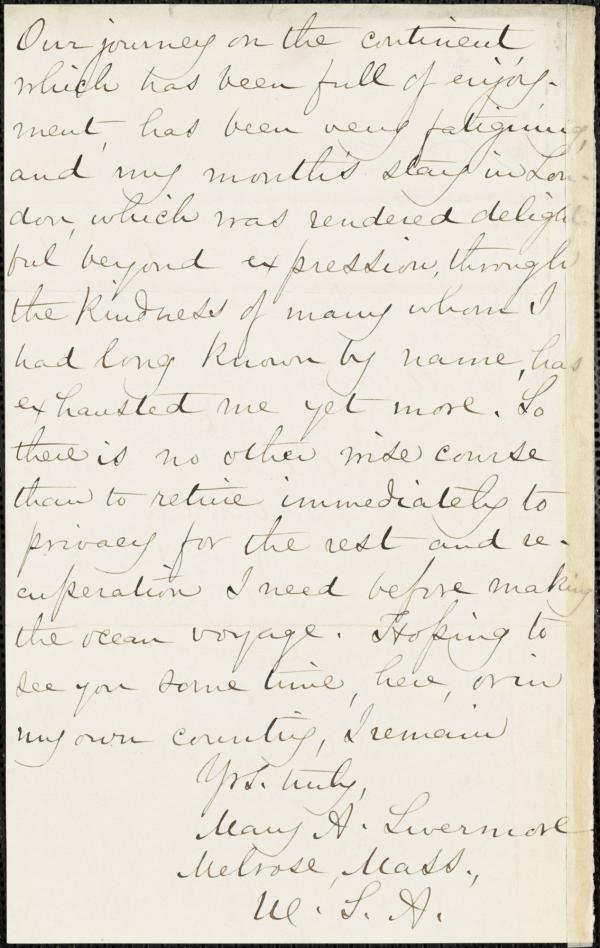 Our journey on the continent,
which has been full of enjoy-
ment, has been very fatiguing,
and my month's stay in Lon-
don, which was rendered delight
ful beyond expression, through
the kindness of many whom I
had long known by name, has
exhausted me yet more. So
there is no other wise course
than to retire immediately to
privacy for the rest and re-
cuperation I need before making
the ocean voyage. Hoping to
see you some time, here, or in
my own country, I remain
Yrs. truly,
Mary A. Livermore
Melrose, Mass.,
U. S. A.